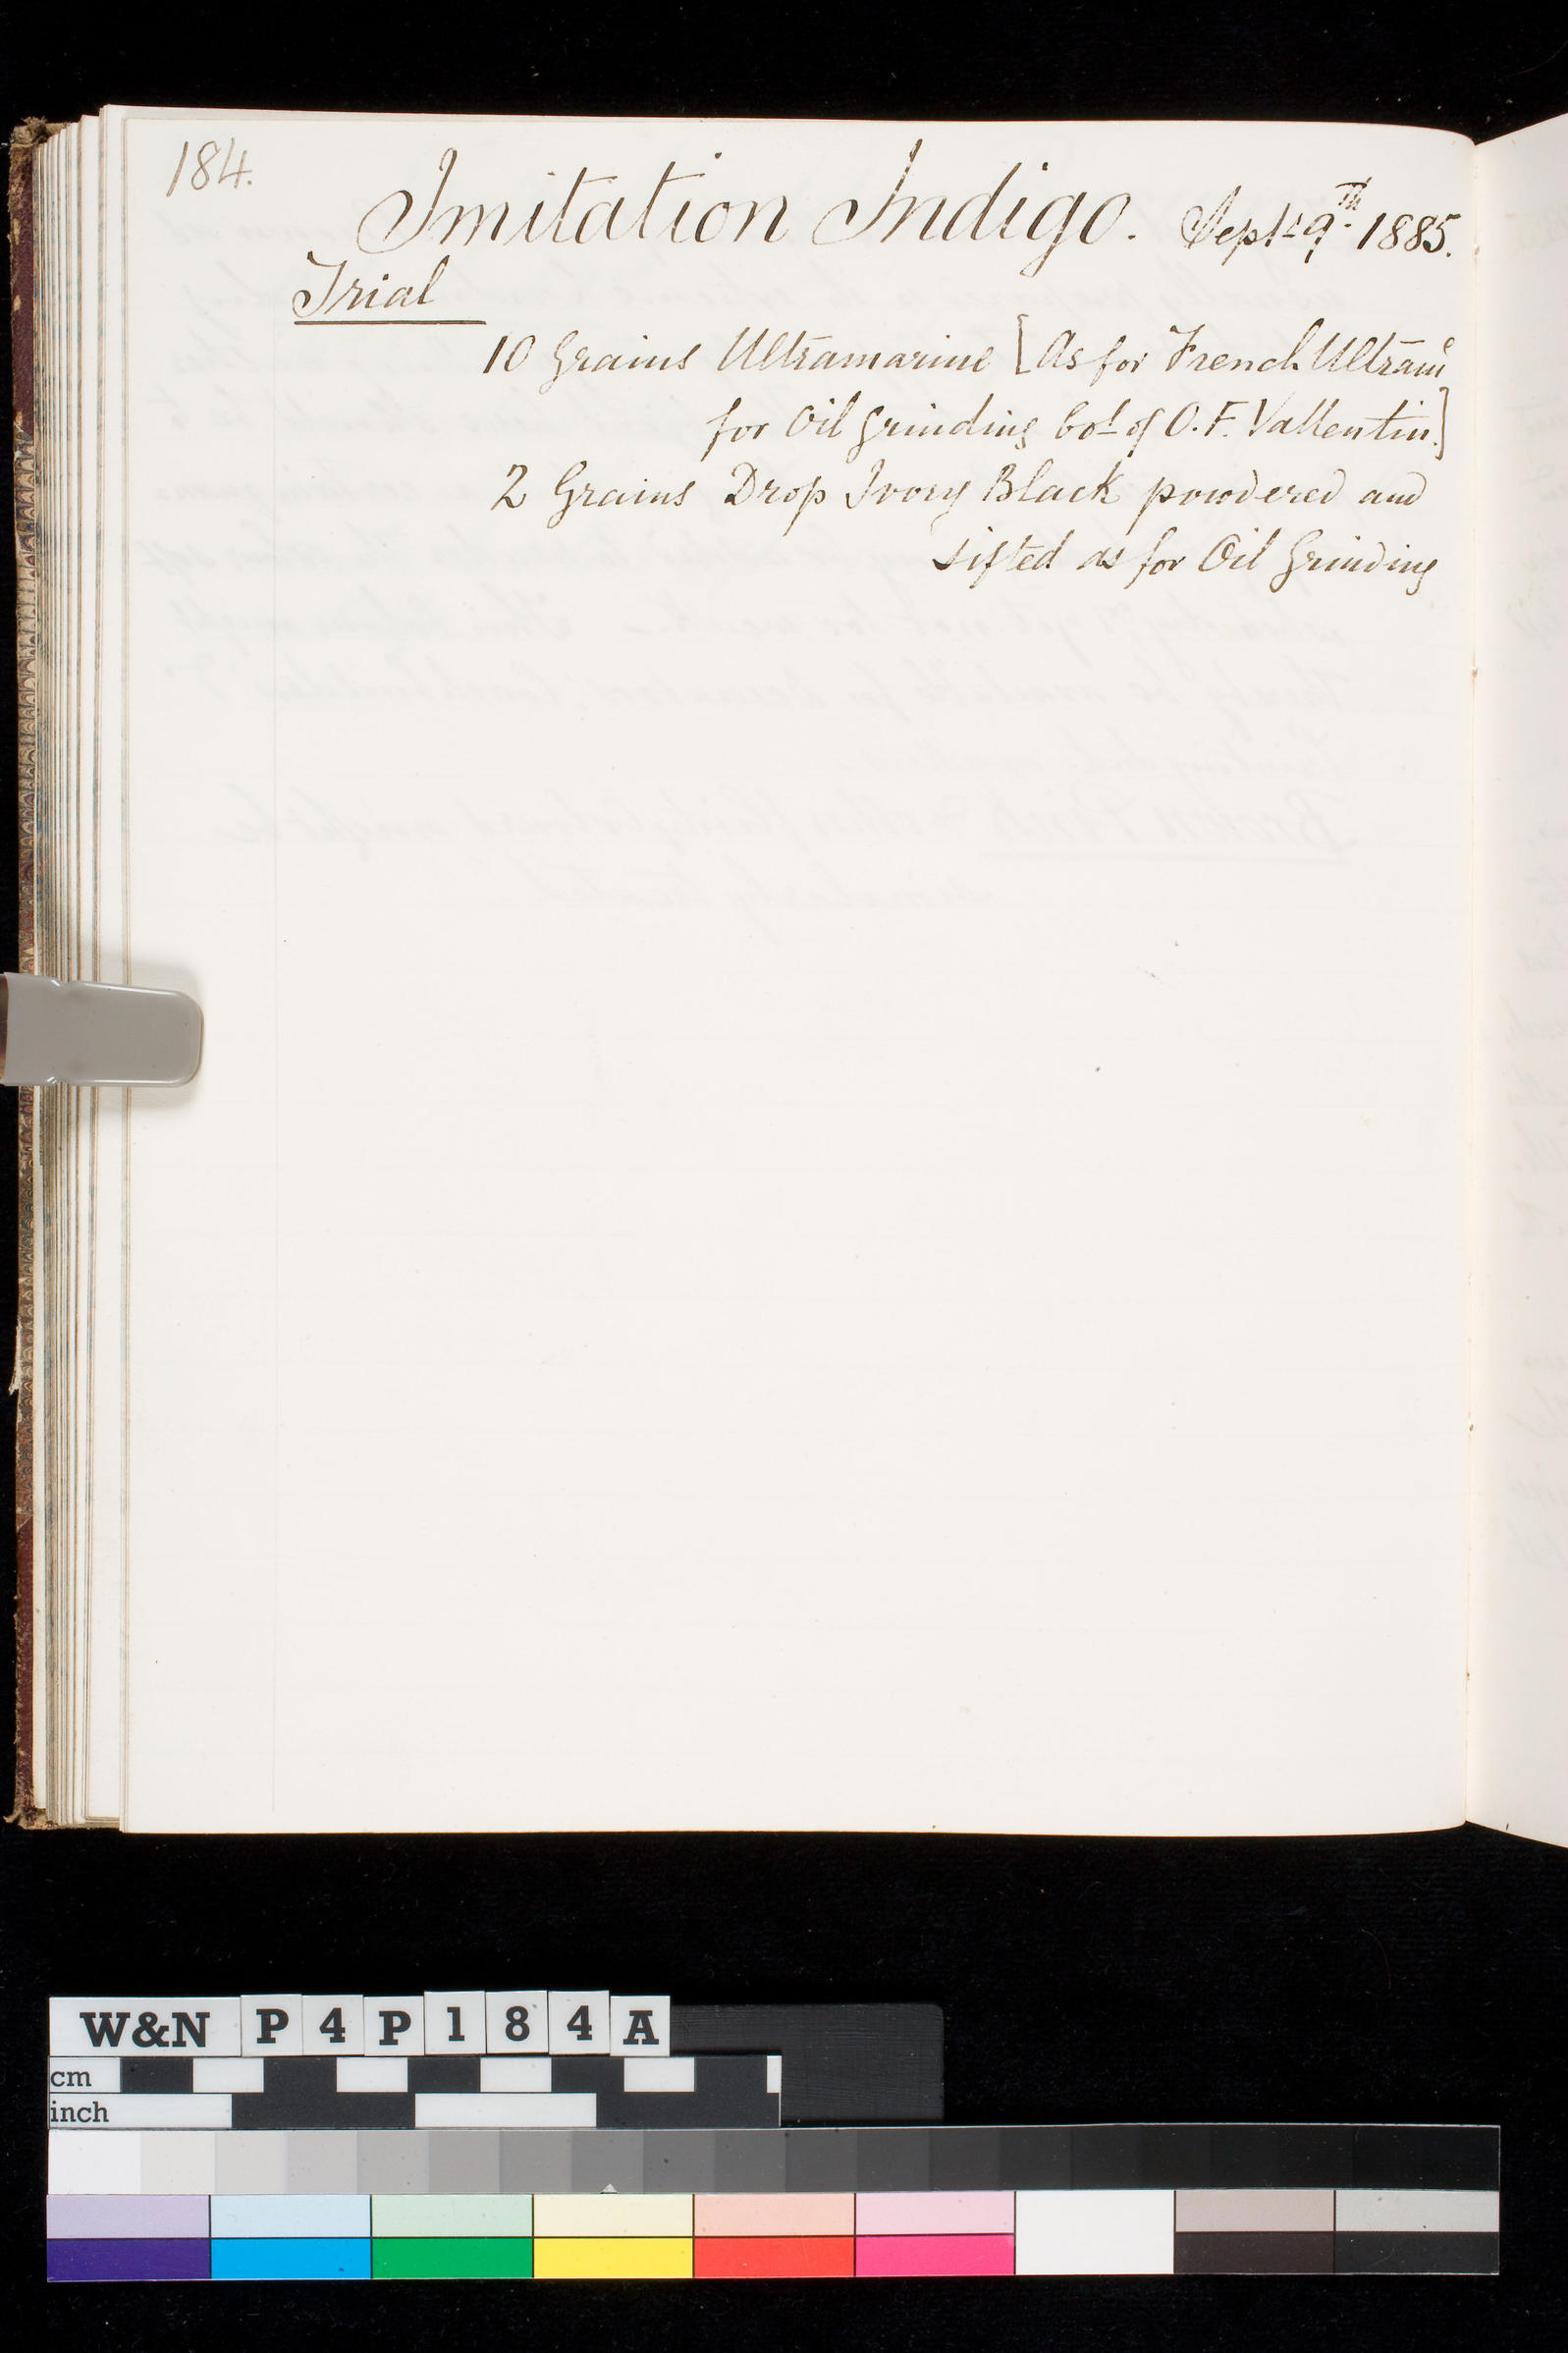 184.
Imitation Indigo. Sept. 9th 1885.
Trial
10 Grains Ultramarine [As for French Ultrame
for Oil Grinding bot of O. F. Vallentin.]
2 Grains Drop Ivory Black powdered and
sifted as for Oil Grinding
W&N P4P184A
cm
inch